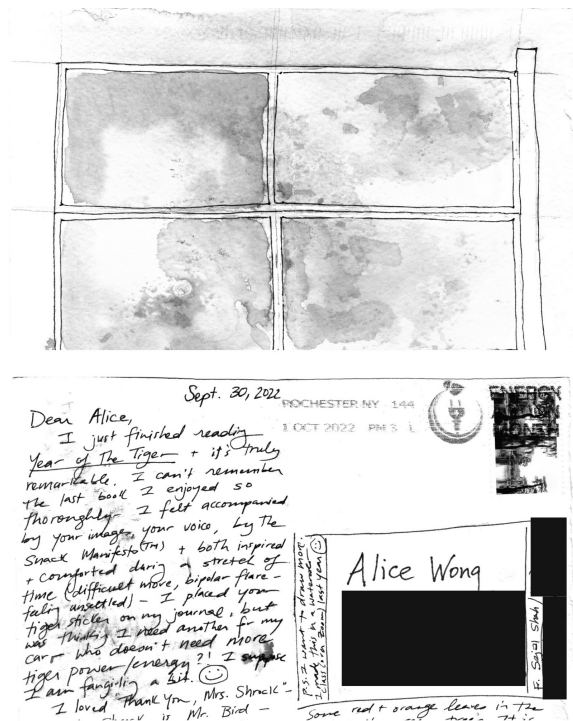 Sept. 30, 2022
ROCHESTER NY 144
1 OCT 2022 PM 3 L
ENERGY
ACTION
MONTH
Dear Alice,
I just finished reading
Year of The Tiger + it's truly
remarkable. I can't remember
the last book I enjoyed so
thoroughly. I felt accompanied
by your images, your voice, by the
Snack Manifesto (TM) + both inspired
+ comforted during a stretch of
time (difficult move, bipolar flare –
feeling unsettled) – I placed your
tiger sticker on my journal, but
was thinking I need another for my
car – who doesn't need more
tiger power/energy?! I suppose
I am fangirling a bit. ☺
I loved "Thank You, Mrs. Shrock" –
is Mr. Bird –
P.S. I want to draw more.
I made this in a watercolor
class (on Zoom) last year ☺
Alice Wong
F. Sejal Shah
Some red + orange leaves in the